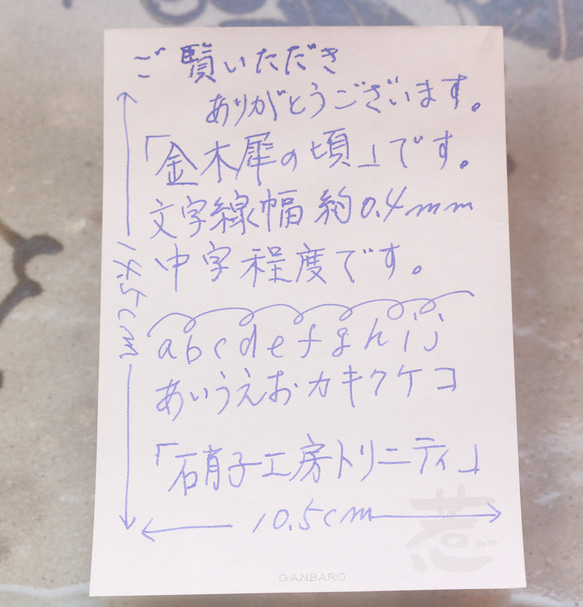 ご覧いただき
ありがとうございます。
「金木犀の頃」です。
文字線幅 約0.4mm
中字程度です。
abcdefghij
あいうえおカキクケコ
「硝子工房トリニティ」
14.5cm
10.5cm
惹
GANBARO